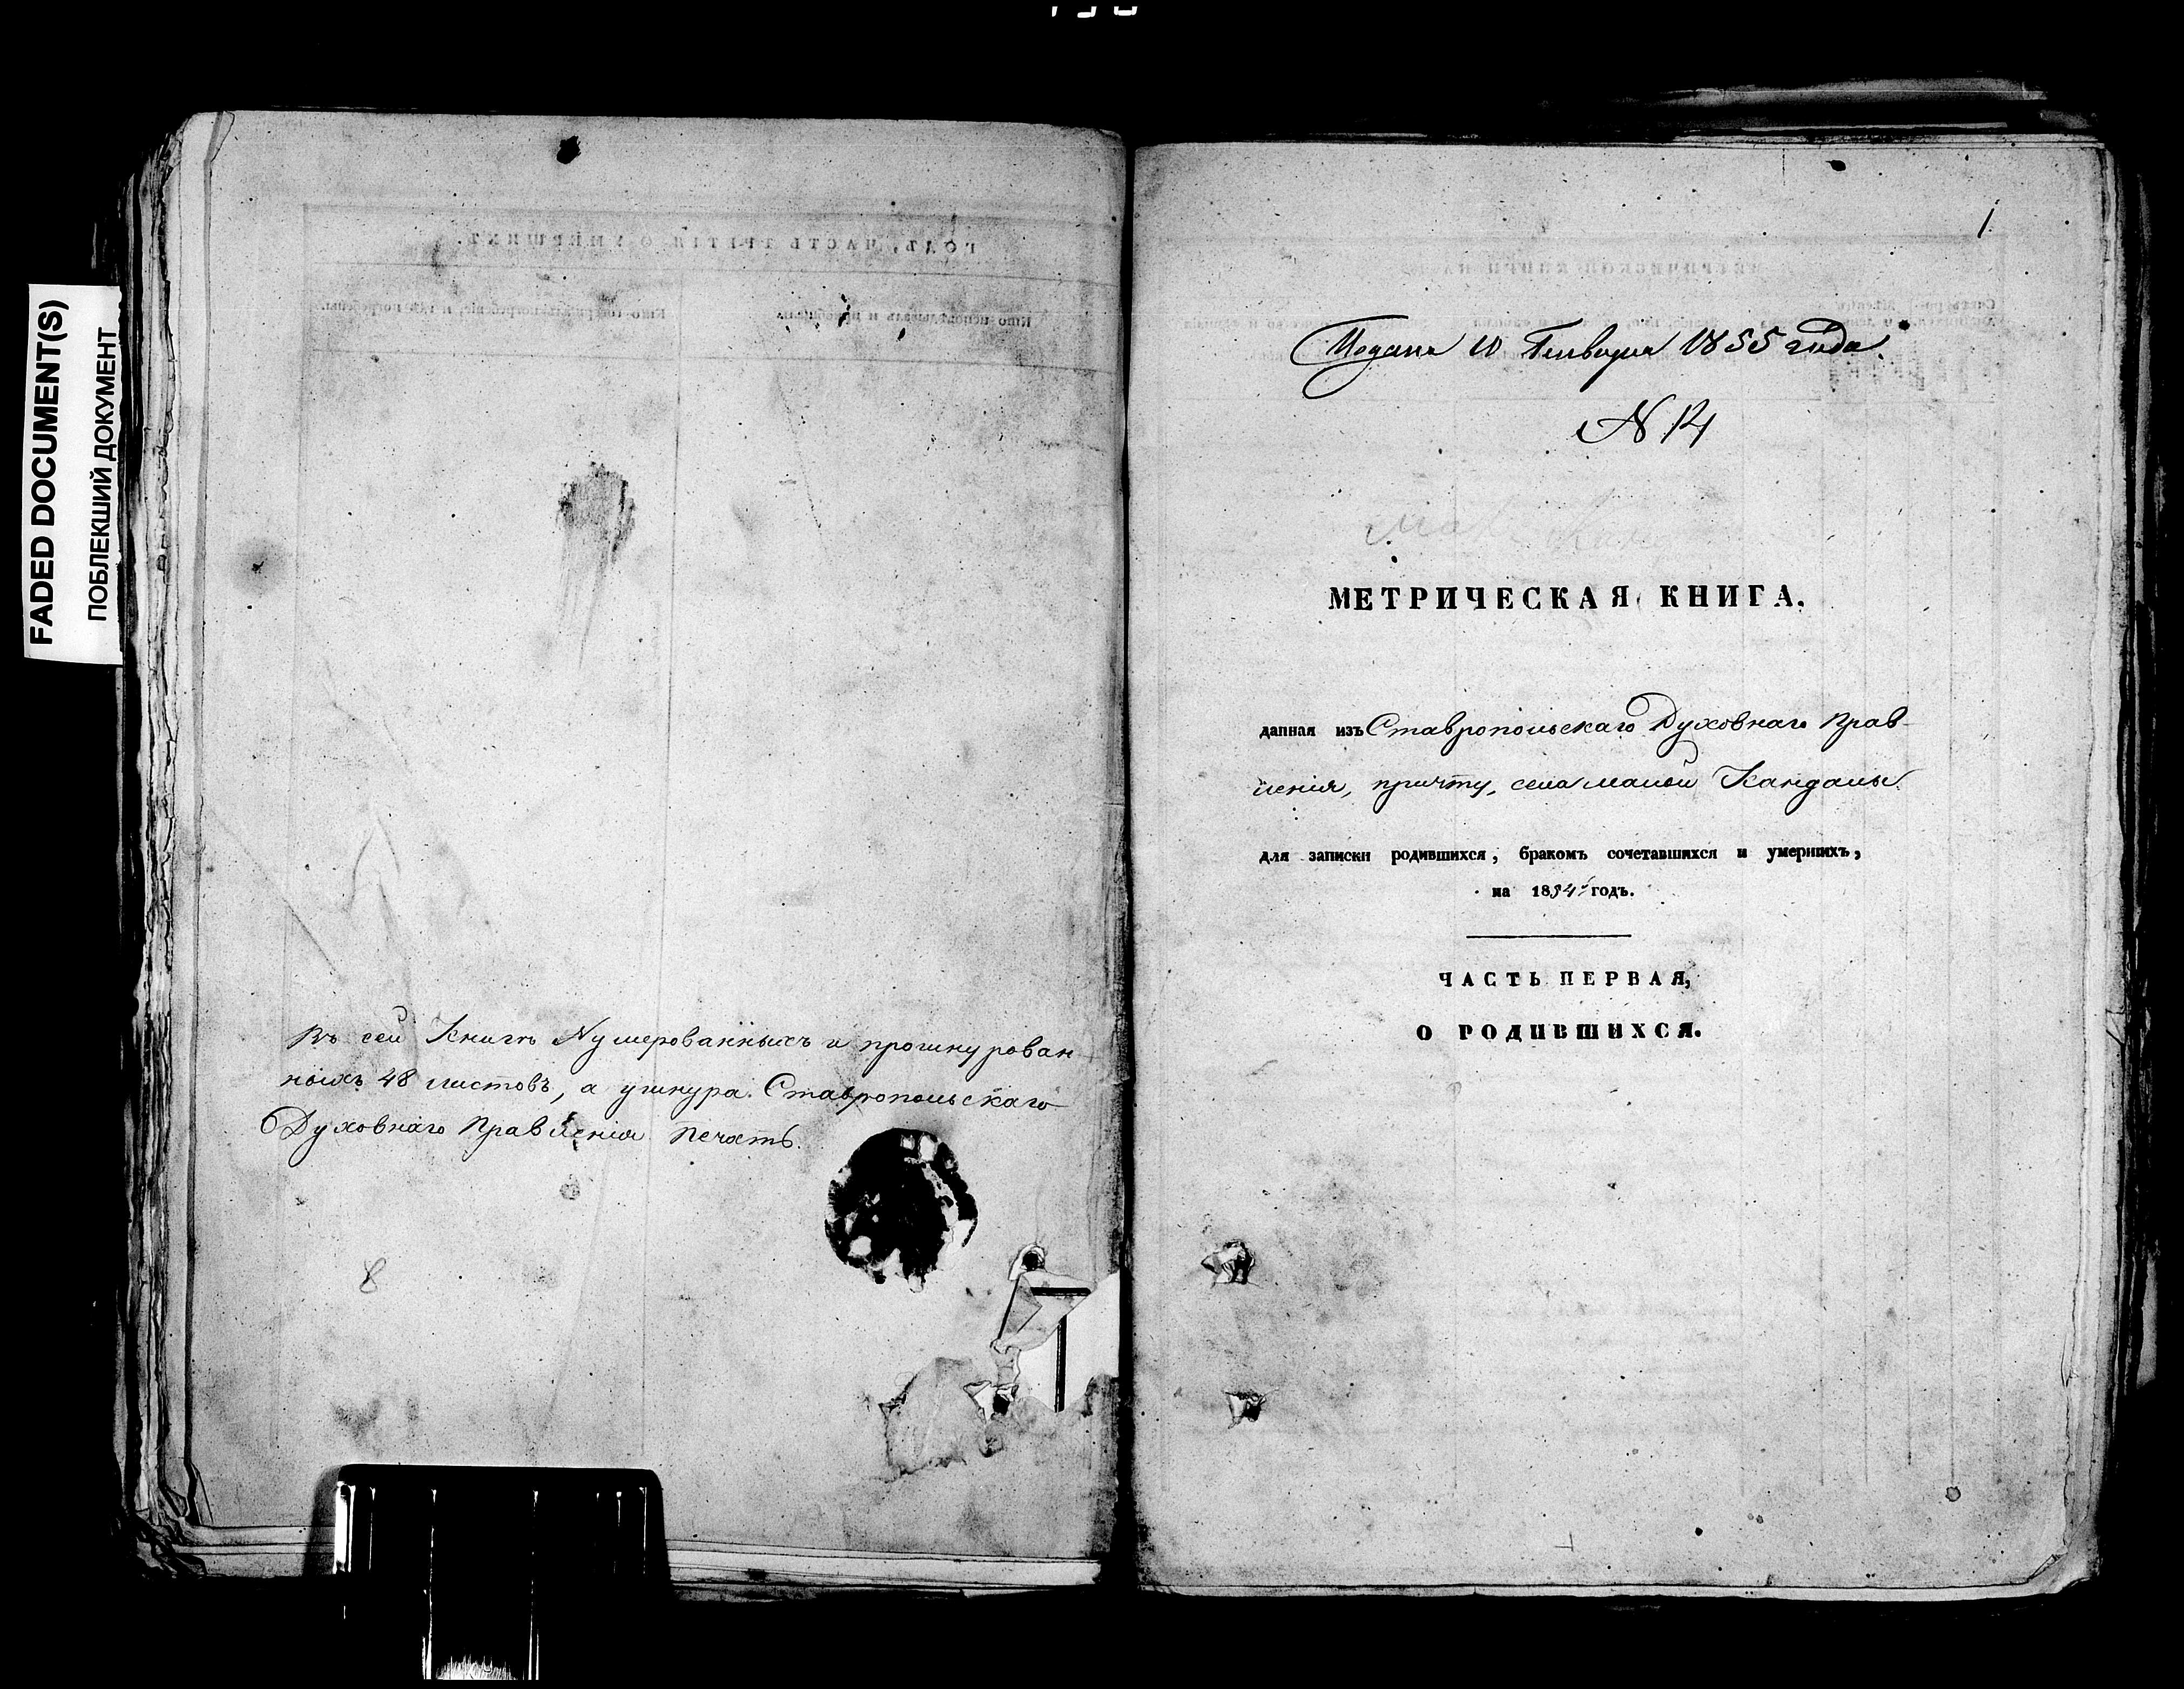 FADED DOCUMENT(S)
ПОБЛЕКШИЙ ДОКУМЕНТ
ГОДЪ, ЧАСТЬ ТРЕТІЯ О УМЕРШИХЪ.
Въ сей Книгѣ Нумерованныхъ и прошнурован
ныхъ 48 листовъ, а у шнура Ставропольскаго
Духовнаго Правленія Печать.
8
1
Подана 10 Генваря 1855 года.
N 14
МЕТРИЧЕСКАЯ КНИГА,
данная изъ Ставропольскаго Духовнаго Прав-
ленія, причту, села малой Кандалы
для записки родившихся, бракомъ сочетавшихся и умершихъ,
на 1854й годъ.
ЧАСТЬ ПЕРВАЯ,
О РОДИВШИХСЯ.